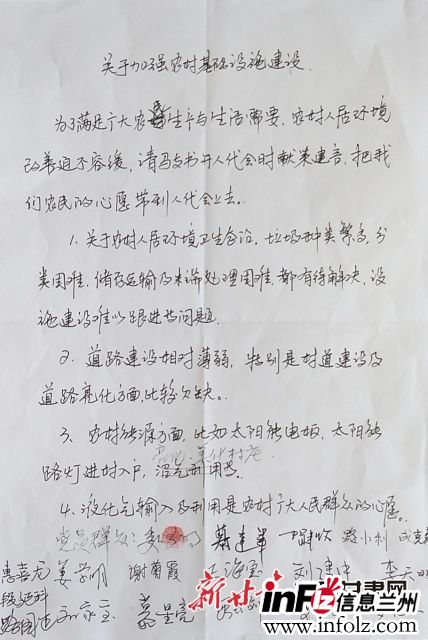 关于加强农村基础设施建设.
为了满足广大农民生产与生活需要，农村人居环境
改善迫不容缓，请马支书开人代会时献策建言，把我
们农民的心愿带到人代会上去。
1.关于农村人居环境卫生
垃圾种类繁多，分
类困难，储存运输及末端处理困难，都有待解决，设
施建设难以跟进等问题.
2.道路建设相对薄弱，特别是村道建设及
道路亮化方面比较欠缺。
3、农村能源方面，比如太阳能电板，太阳能
美化村庄
路灯进村入户，沼气利用等。
4.液化气输入及利用是农村广大人民群众的心愿。
党员群众：
路小利
惠喜龙 姜学明 谢菊霞 刘建中
新甘肃
甘肃网
inf 信息兰州
www.infolz.com
www.infolz.com